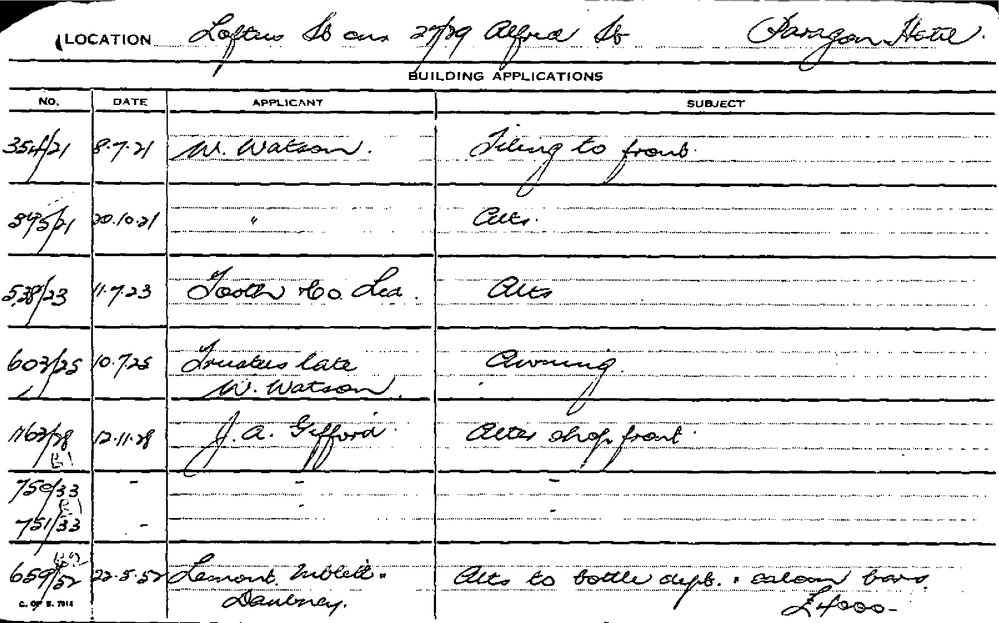 LOCATION Loftus St cnr 27/29 Alfred St Paragon Hotel.
BUILDING APPLICATIONS
NO. DATE APPLICANT SUBJECT
354/21 8.7.21 W. Watson. Tiling to front.
20.10.21 " Alts.
538/23 11.7.23 Tooth & Co. Ltd. Alts
603/25 10.7.25 Trustees late Awning.
W. Watson.
1163/28 12.11.28 J. A. Gifford. Alter shop front.
750/33 - - -
751/33 - - -
659/52 22.5.52 Alts to bottle dept. & saloon bars,
Daubney. £4000-
C. OF S. 7014